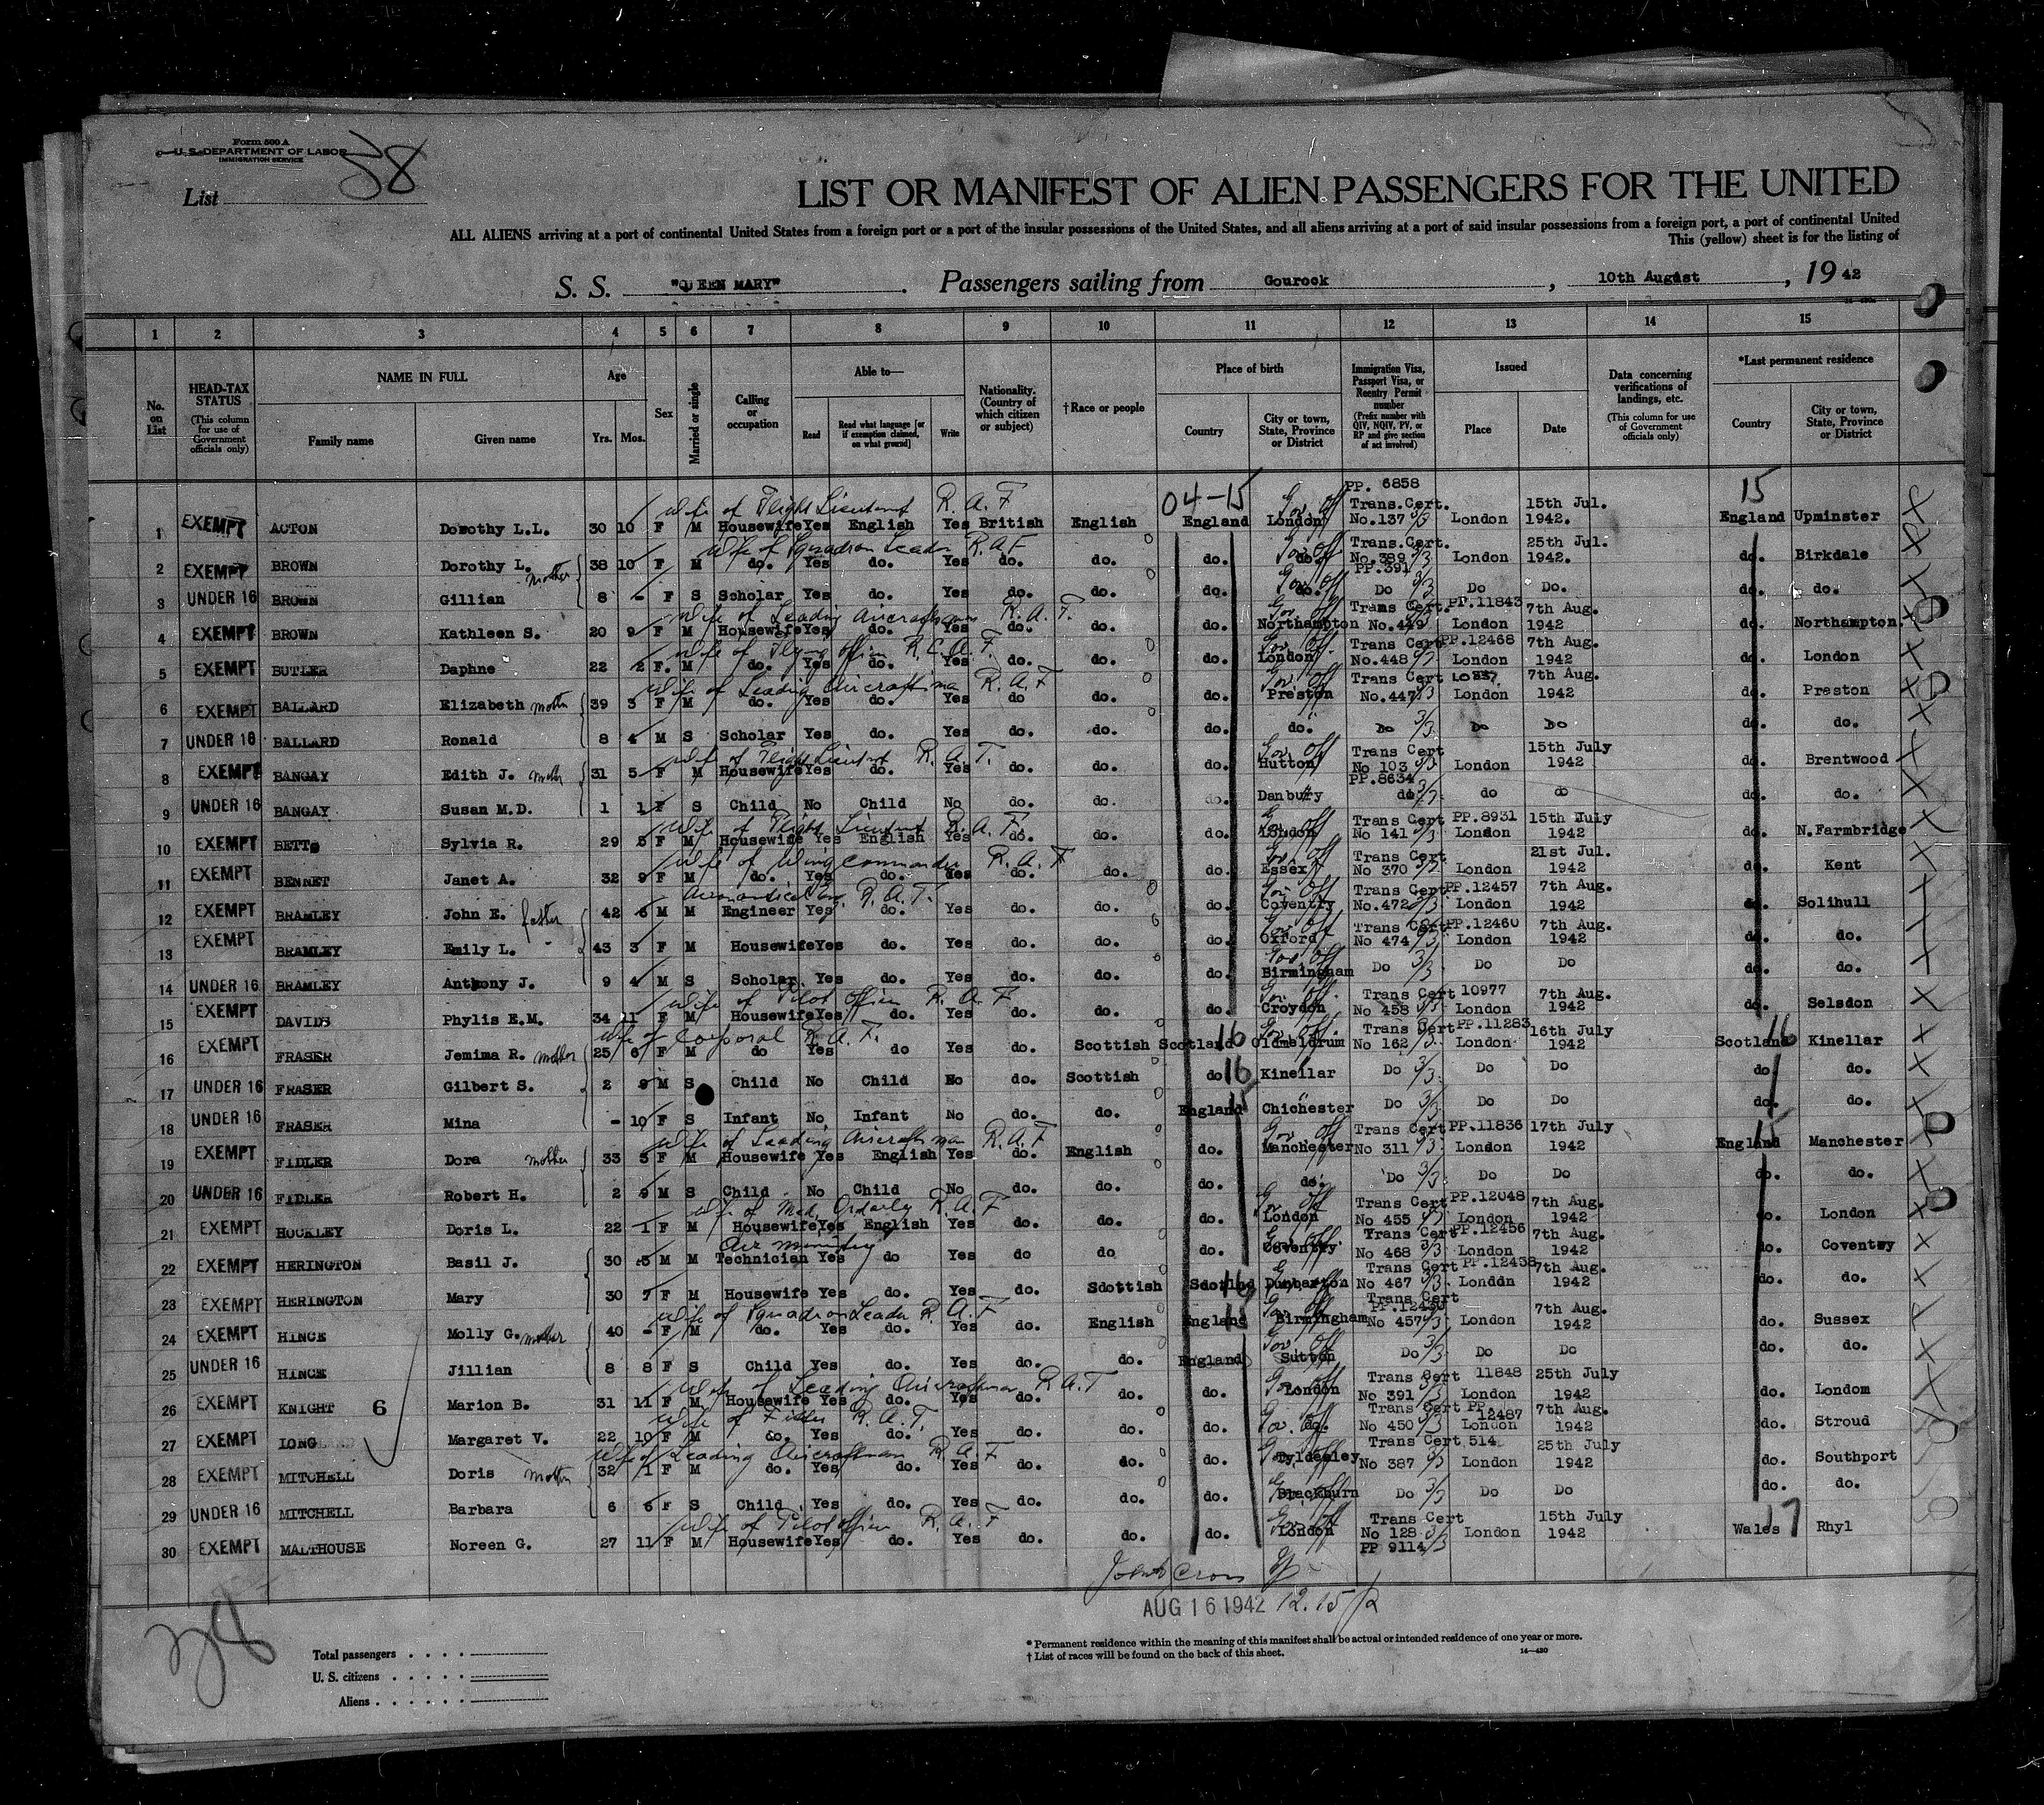 Form 500 A
U. S. DEPARTMENT OF LABOR
IMMIGRATION SERVICE
List 38
LIST OR MANIFEST OF ALIEN PASSENGERS FOR THE UNITED
ALL ALIENS arriving at a port of continental United States from a foreign port or a port of the insular possessions of the United States, and all aliens arriving at a port of said insular possessions from a foreign port, a port of continental United
This (yellow) sheet is for the listing of
S. S. "QUEEN MARY" . Passengers sailing from Gourock , 10th August , 19 42
1 2 3 4 5 6 7 8 9 10 11 12 13 14 15
No. on List
HEAD-TAX STATUS (This column for use of Government officials only)
NAME IN FULL
Family name Given name
Age
Yrs. Mos.
Sex
Married or single
Calling or occupation
Able to—
Read Read what language [or if exemption claimed, on what ground] Write
Nationality. (Country of which citizen or subject)
†Race or people
Place of birth
Country City or town, State, Province or District
Immigration Visa, Passport Visa, or Reentry Permit number (Prefix number with QIV, NQIV, PV, or RP and give section of act involved)
Issued
Place Date
Data concerning verifications of landings, etc. (This column for use of Government officials only)
*Last permanent residence
Country City or town, State, Province or District
04-15 PP. 6858 15
Wife of Flight Lieutenant R.A.F Gov Off Trans.Cert. 15th Jul.
1 EXEMPT ACTON Dorothy L.L. 30 10 F M Housewife Yes English Yes British English England London No.137 3/3 London 1942. England Upminster
Wife of Squadron Leader R.A.F Gov Off Trans.Cert. 25th Jul.
2 EXEMPT BROWN Dorothy L. mother 38 10 F M do. Yes do. Yes do. do. do. do. No.389 3/3 London 1942. do. Birkdale
PP.391
3 UNDER 16 BROWN Gillian 8 - F S Scholar Yes do. Yes do. do. do. do. Do 3/3 Do Do. do. do.
Wife of Leading Aircraftman R.A.F. Gov Off Trans Cert. PP.11843 7th Aug.
4 EXEMPT BROWN Kathleen S. 20 9 F M Housewife Yes do. Yes do. do. do. Northampton No.449 London 1942 do. Northampton.
Wife of Flying Officer R.C.A.F. Gov Off. Trans Cert PP.12468 7th Aug.
5 EXEMPT BUTLER Daphne 22 2 F. M do. Yes do. Yes do. do. do. London No.448 3/3 London 1942 do. London
Wife of Leading Aircraftman R.A.F Gov Off Trans Cert 7th Aug.
6 EXEMPT BALLARD Elizabeth mother 39 3 F M do. Yes do. Yes do do. do. Preston No.447 3/3 London 1942 do. Preston
7 UNDER 16 BALLARD Ronald 8 4 M S Scholar Yes do. Yes do. do. do. do. Do 3/3 Do Do do. do.
Wife of Flight Lieutenant R.A.F. Gov Off Trans Cert 15th July
8 EXEMPT BANGAY Edith J. mother 31 5 F M Housewife Yes do. Yes do. do. do. Hutton No 103 3/3 London 1942 do. Brentwood
PP.8634
9 UNDER 16 BANGAY Susan M.D. 1 1 F S Child No Child No do. do. do. Danbury do 3/3 do do do. do.
Wife of Flight Lieutenant R.A.F. Gov Off Trans Cert PP.8931 15th July
10 EXEMPT BETTS Sylvia R. 29 5 F M Housewife Yes English Yes do. do. do. London No 141 3/3 London 1942 do. N.Farmbridge
Wife of Wing Commander R.A.F Gov Off Trans Cert 21st Jul.
11 EXEMPT BENNET Janet A. 32 9 F M do. Yes do. Yes do. do. do. Essex No 370 3/3 London 1942 do. Kent
Aeronautical Eng. R.A.F. Gov Off Trans Cert PP.12457 7th Aug.
12 EXEMPT BRAMLEY John E. father 42 6 M M Engineer Yes do. Yes do. do. do. Coventry No.472 3/3 London 1942 do. Solihull
Gov Off Trans Cert PP.12460 7th Aug.
13 EXEMPT BRAMLEY Emily L. 43 3 F M Housewife Yes do. Yes do. do. do. Oxford No 474 3/3 London 1942 do. do.
Gov Off
14 UNDER 16 BRAMLEY Anthony J. 9 4 M S Scholar Yes do. Yes do. do. do. Birmingham Do 3/3 Do Do do. do.
Wife of Pilot Officer R.A.F Gov Off. Trans Cert 10977 7th Aug.
15 EXEMPT DAVIDS Phylis E.M. 34 11 F M Housewife Yes do. Yes do. do. do. Croydon No 458 3/3 London 1942 do. Selsdon
Wife of Corporal R.A.F. 16 Gov Off. Trans Cert PP.11283 16th July 16
16 EXEMPT FRASER Jemima R. mother 25 6 F M do Yes do Yes do. Scottish Scotland Oldmeldrum No 162 3/3 London 1942 Scotland Kinellar
17 UNDER 16 FRASER Gilbert S. 2 9 M S Child No Child No do. Scottish do 16 Kinellar Do 3/3 Do Do do. do.
18 UNDER 16 FRASER Mina - 10 F S Infant No Infant No do. do. England 15 Chichester Do 3/3 Do Do do. do.
Wife of Leading Aircraftman R.A.F Gov Off Trans Cert PP.11836 17th July
19 EXEMPT FIDLER Dora mother 33 5 F M Housewife Yes English Yes do. English do. Manchester No 311 3/3 London 1942 England Manchester
20 UNDER 16 FIDLER Robert H. 2 9 M S Child No Child No do. do. do. do. Do 3/3 Do Do do. do.
Wife of Med. Orderly R.A.F Gov Off Trans Cert PP.12048 7th Aug.
21 EXEMPT HOCKLEY Doris L. 22 1 F M Housewife Yes English Yes do. do. do. London No 455 3/3 London 1942 do. London
Air Ministry Gov Off Trans Cert PP.12456 7th Aug.
22 EXEMPT HERINGTON Basil J. 30 5 M M Technician Yes do Yes do do do. Coventry. No 468 3/3 London 1942 do. Coventry
16 Gov Off Trans Cert PP.12458 7th Aug.
23 EXEMPT HERINGTON Mary 30 7 F M Housewife Yes do. Yes do. Sdottish Sdotlnd Dunbarton No 467 3/3 London 1942 do. do.
Wife of Squadron Leader R.A.F 15 Gov Off Trans Cert 7th Aug.
24 EXEMPT HINCE Molly G. mother 40 - F M do. Yes do. Yes do. English England Birmingham No 457 3/3 London 1942 do. Sussex
Gov Off
25 UNDER 16 HINCE Jillian 8 8 F S Child Yes do. Yes do. do. England Sutton Do 3/3 Do Do do. do.
Wife of Leading Aircraftman R.A.F Gov Off Trans Cert 11848 25th July
26 EXEMPT KNIGHT 6 Marion B. 31 11 F M Housewife Yes do. Yes do. do. do. London No 391 3/3 London 1942 do. Londom
Wife of R.A.F. Trans Cert PP. 12487 7th Aug.
27 EXEMPT LONG Margaret V. 22 10 F M do. Yes do. Yes do. do. do. Gov. Off. do. No 450 3/3 London 1942 do. Stroud
Wife of Leading Aircraftman R.A.F Gov Off Trans Cert 514 25th July
28 EXEMPT MITCHELL Doris mother 32 1 F M do. Yes do. Yes do. do. do. Tyldesley No 387 3/3 London 1942 do. Southport
29 UNDER 16 MITCHELL Barbara 6 6 F S Child Yes do. Yes do. do. do. Blackburn Do 3/3 Do Do do. do.
Wife of Pilot Officer R.A.F Gov Off Trans Cert 15th July
30 EXEMPT MALTHOUSE Noreen G. 27 11 F M Housewife Yes do. Yes do. do. do. London No 128 3/3 London 1942 Wales 17 Rhyl
PP 9114 3/3
Cross
AUG 16 1942 12.15
38
Total passengers . . . .
U. S. citizens . . . . .
Aliens . . . . . .
* Permanent residence within the meaning of this manifest shall be actual or intended residence of one year or more.
† List of races will be found on the back of this sheet.
14—430